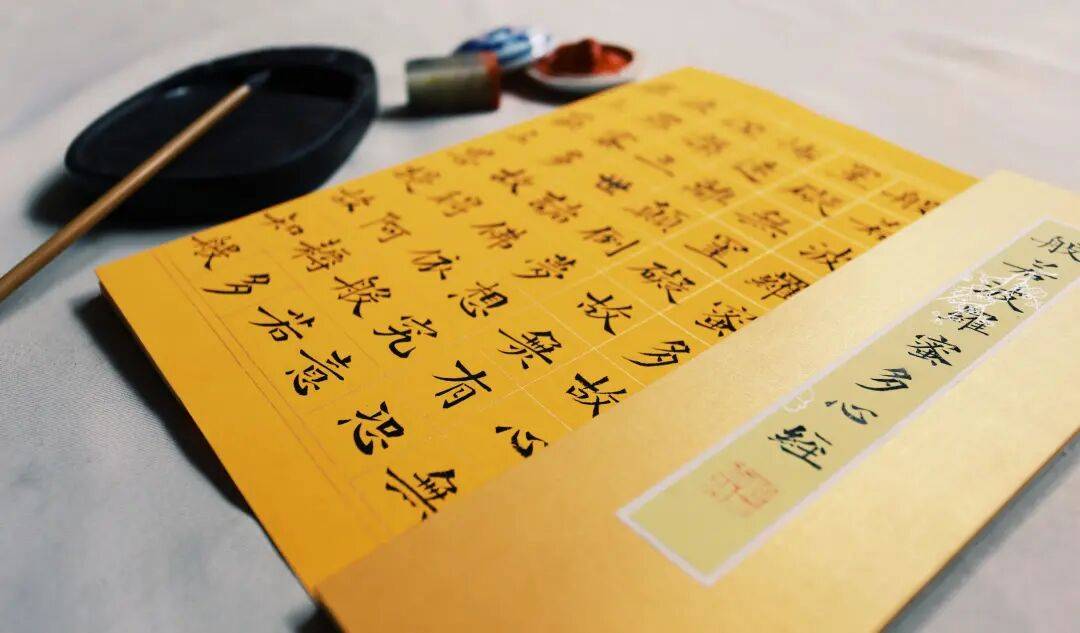 般若波羅蜜多心經
般若波羅蜜多故心無
罣礙無罣礙故無有恐
怖遠離顛倒夢想究竟
涅槃三世諸佛依般若
羅蜜多故得阿耨多
三菩提故知般